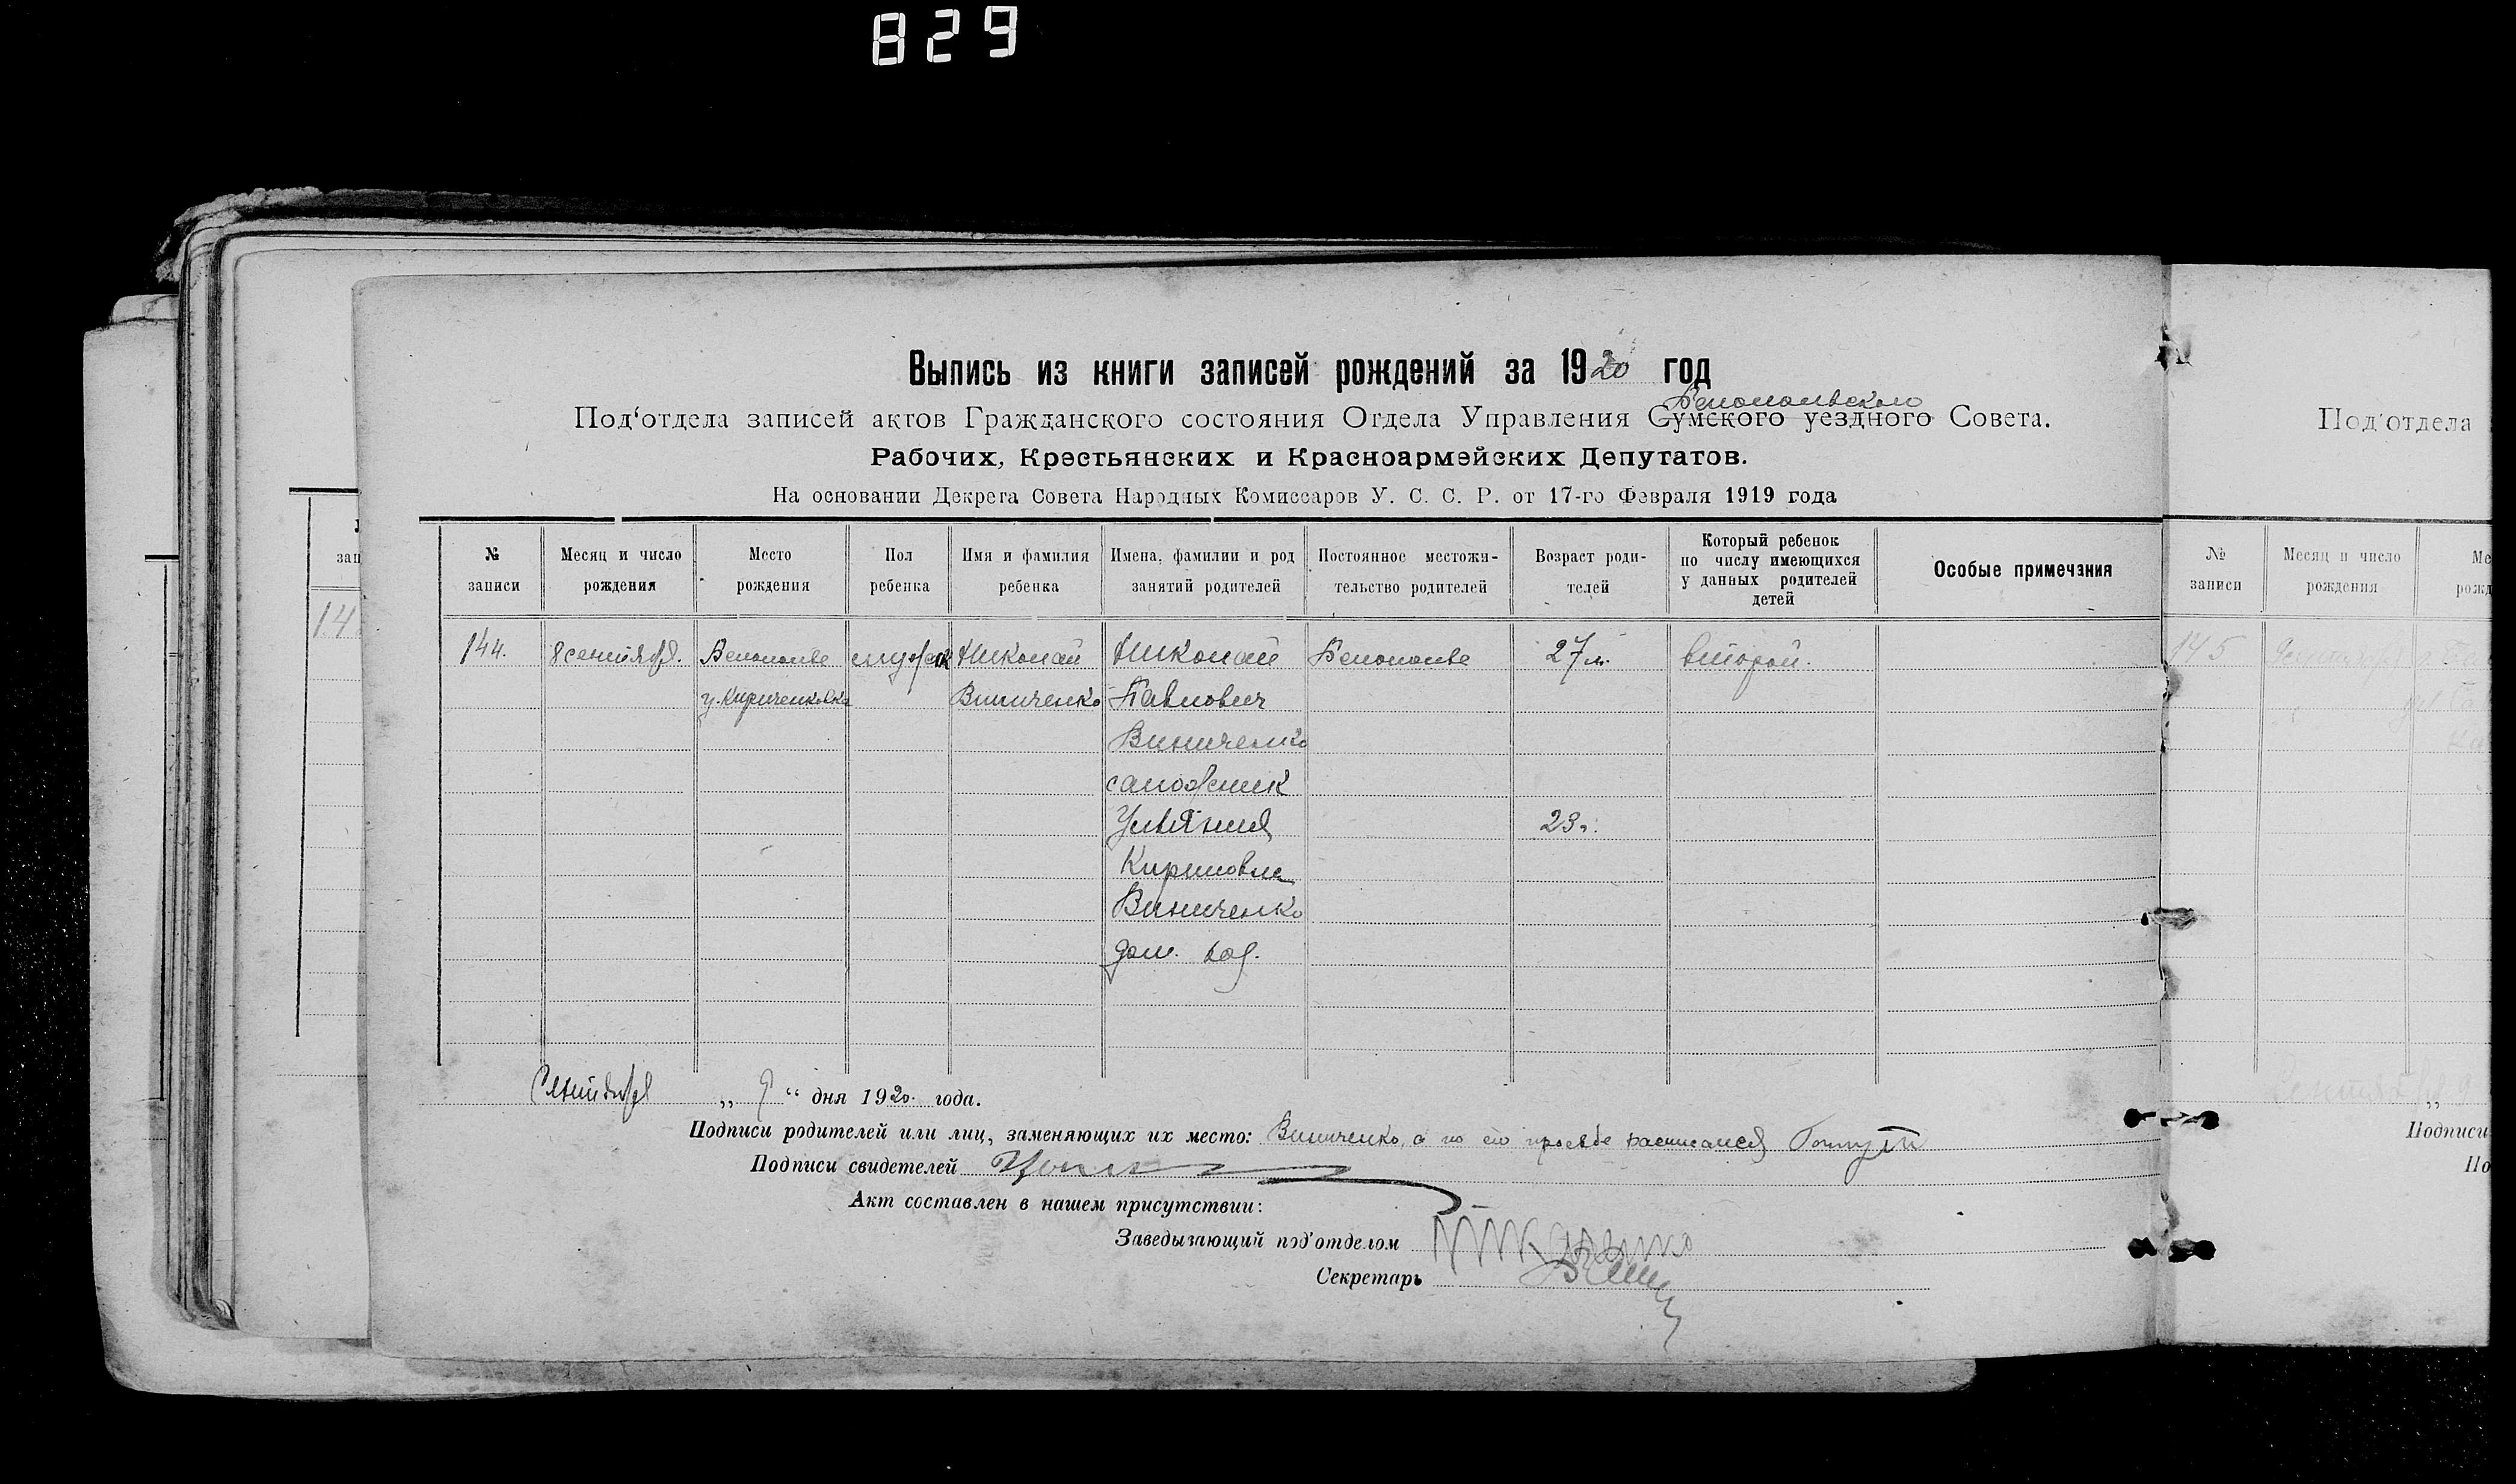 829
Выпись из книги записей рождений за 1920 год
Белопольского
Под‘отдела записей актов Гражданского состояния Отдела Управления Сумского уездного Совета.
Рабочих, Крестьянских и Красноармейских Депутатов.
На основании Декрета Совета Народных Комиссаров У. С. С. Р. от 17-го Февраля 1919 года
№ записи
Месяц и число рождения
Место рождения
Пол ребенка
Имя и фамилия ребенка
Имена, фамилии и род занятий родителей
Постоянное местожительство родителей
Возраст родителей
Который ребенок по числу имеющихся у данных родителей детей
Особые примечания
144. 8 сентября. Белополье мужск Николай Николай Белополье 27 л. второй.
у. Кириченковка Виниченко Павлович
Виниченко
сапожник
Ульяния 23 г.
Кириловна
Виниченко
дом. хоз.
Сентября „ 9 “ дня 1920. года.
Подписи родителей или лиц, заменяющих их место: Виниченко, а по его просьбе расписался
Подписи свидетелей
Акт составлен в нашем присутствии:
Заведывающий под‘отделом
Секретарь
зап
14
Под‘отдела
№ записи
Месяц и число рождения
Ме
рожд
145
Подписи
По